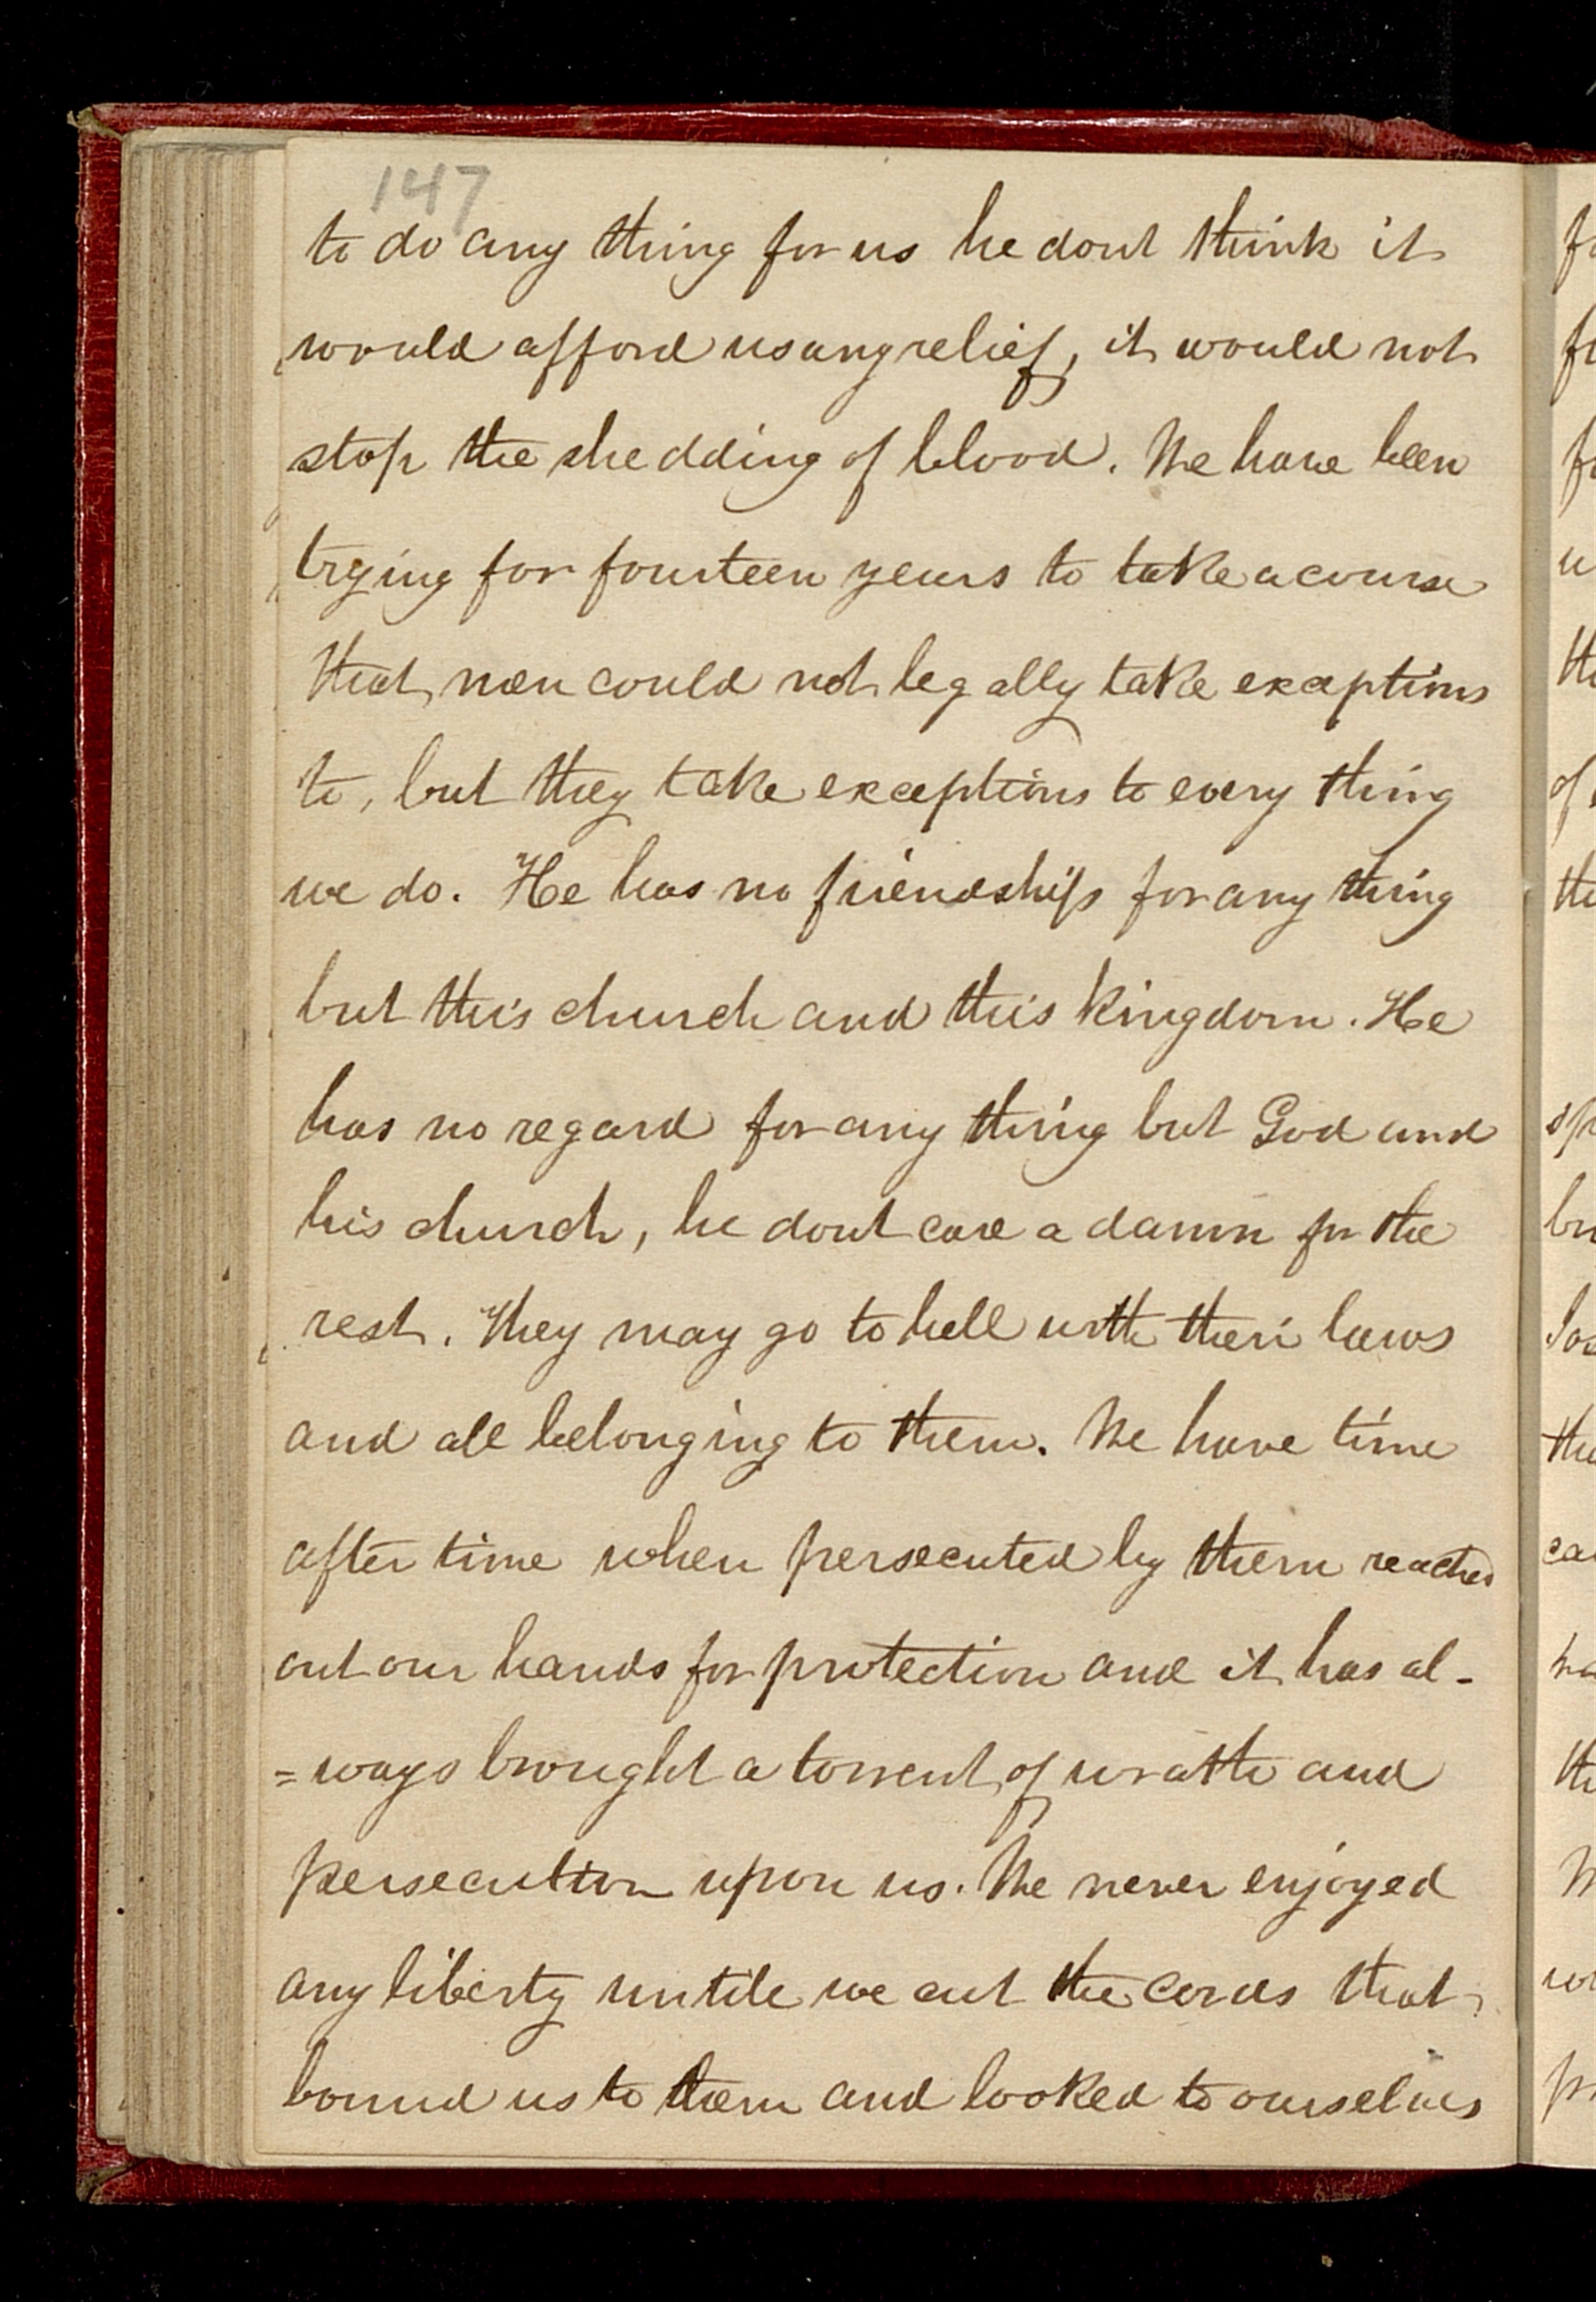 147
to do any thing for us he dont think it
would afford us any relief, it would not
stop the shedding of blood. We have been
trying for fourteen years to take a course
that men could not legally take exceptions
to, but they take exceptions to every thing
we do. He has no friendship for any thing
but this church and this kingdom. He
has no regard for any thing but God and
his church, he dont care a damn for the
rest. They may go to hell with their laws
and all belonging to them. We have time
after time when persecuted by them reached
out our hands for protection and it has al-
=ways brought a torrent of wrath and
persecution upon us. We never enjoyed
any liberty untill we cut the cords that
bound us to them and looked to ourselves